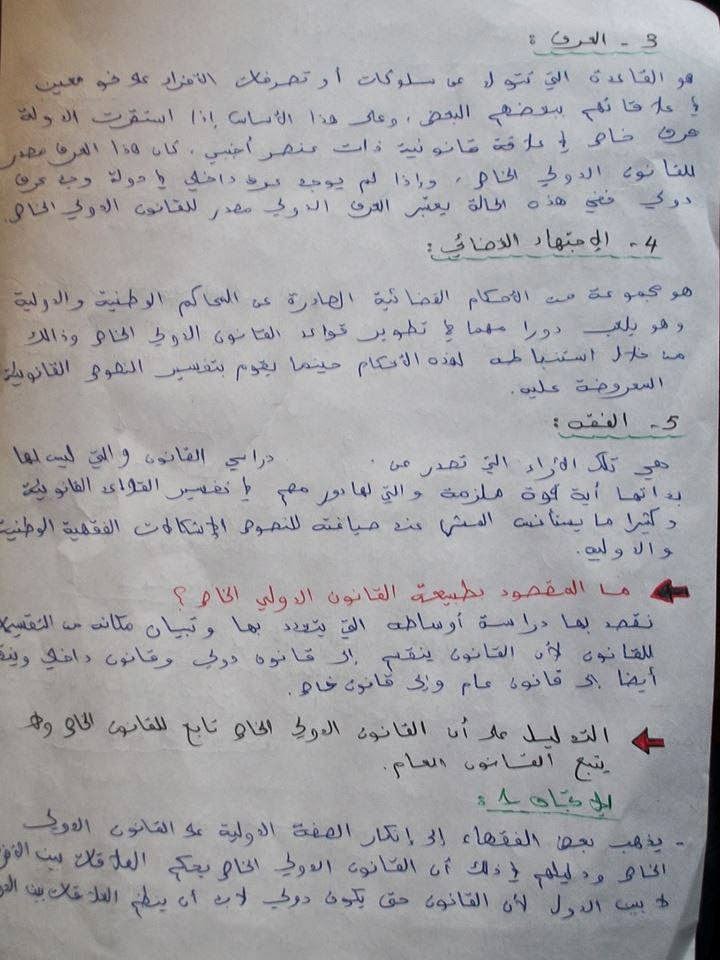 3 - العرف :
هو القاعدة التي تتولد عن سلوكات أو تصرفات الأفراد على نحو معين
في علاقاتهم ببعضهم البعض ، وعلى هذا الأساس إذا استقرت الدولة
عرف خاص في علاقة قانونية ذات عنصر أجنبي ، كان هذا العرف مصدر
للقانون الدولي الخاص ، وإذا لم يوجد عرف داخلي في دولة وجد عرف
دولي ففي هذه الحالة يعتبر العرف الدولي مصدر للقانون الدولي الخاص.
4 - الاجتهاد القضائي :
هو مجموعة من الأحكام القضائية الصادرة عن المحاكم الوطنية والدولية
وهو يلعب دورا مهما في تطوير قواعد القانون الدولي الخاص وذالك
من خلال استنباطه لهذه الأحكام حينما يقوم بتفسير النصوص القانونية
المعروضة عليه.
5 - الفقه :
هي تلك الآراء التي تصدر من دراسي القانون والتي ليس لها
بذاتها أية قوة ملزمة والتي لها دور مهم في تفسير القواعد القانونية
وكثيرا ما يستأنس المشرع عند صياغته للنصوص الإشكالات الفقهية الوطنية
والدولية.
ما المقصود بطبيعة القانون الدولي الخاص ؟
نقصد بها دراسة أوساطه التي يتحدد بها وتبيان مكانه من
للقانون لأن القانون ينقسم إلى قانون دولي وقانون داخلي
أيضا إلى قانون عام وإلى قانون خاص.
التدليل على أن القانون الدولي الخاص تابع للقانون الخاص ولا
يتبع القانون العام.
الاتجاه 1 :
- يذهب بعض الفقهاء إلى إنكار الصفة الدولية على القانون الدولي
الخاص ودليلهم في ذلك أن القانون الدولي الخاص يحكم العلاقات بين
لا بين الدول لأن القانون حتى يكون دولي لابد أن ينظم العلاقات بين